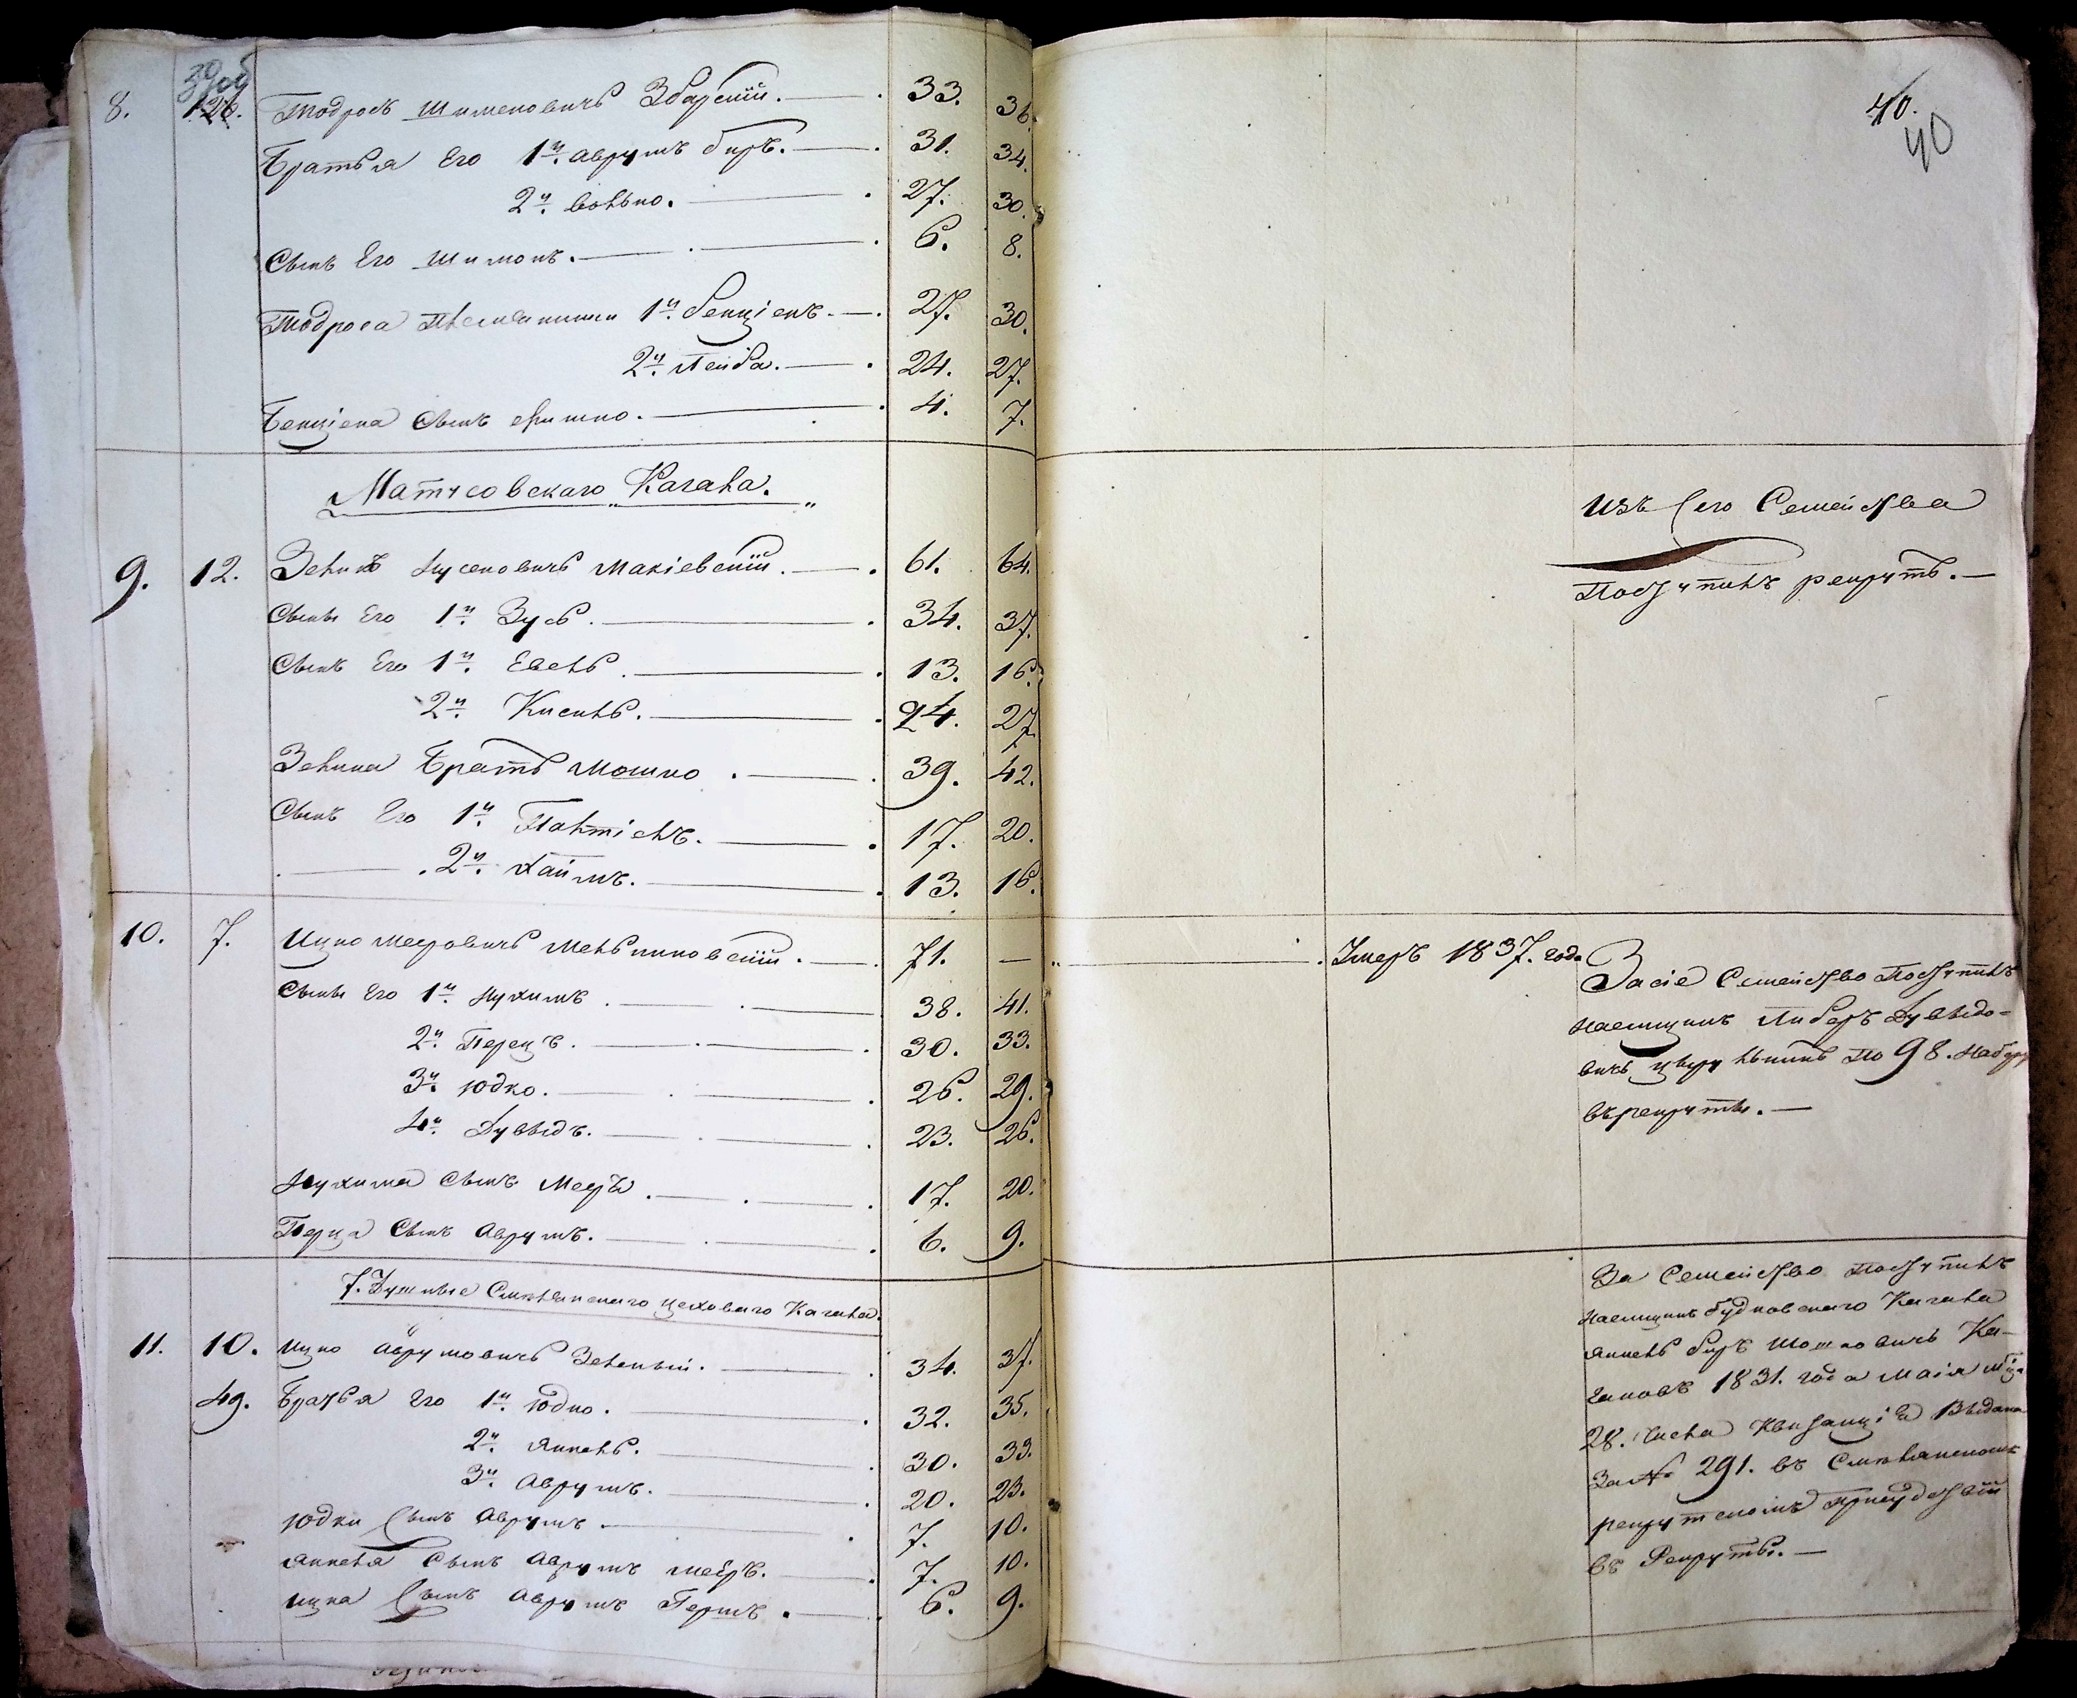 39об
8. 126. Тодросъ Шименовичъ Збарскій. 33. 36.
Братья Его 1й. Аврумъ беръ. 31. 34.
2й. Волько. 27. 30.
Сынъ Его Шимонъ. 6. 8.
Тодроса Племянники 1й. Бенціенъ. 27. 30.
2й. Лейба. 24. 27.
Бенціена Сынъ Ершко. 4. 7.
Матусовскаго Кагала.
9. 12. Зеликъ Нусеновичъ Макіевскій. 61. 64.
Сынъ Его 1й. Зусь. 34. 37.
Сынъ Его 1й. Евель. 13. 16.
2й. Кисиль. 24. 27.
Зелика Братъ Мошко. 39. 42.
Сынъ Его 1й. Палтіелъ. 17. 20.
2й. Хаимъ. 13. 16.
10. 7. Ицко Мееровичъ Мельниковскій. 71. —
Сыны Его 1й. Нухимъ. 38. 41.
2й. Перецъ. 30. 33.
3й. Юдко. 26. 29.
4й. Дувыдъ. 23. 26.
Нухима Сынъ Мееръ. 17. 20.
Перца Сынъ Аврумъ. 6. 9.
Смѣлянскаго цеховаго Кагала.
11. 10. Ицко Аврумовичъ Зеленый. 34. 37.
49. Братья Его 1й. Юдко. 32. 35.
2й. Янкель. 30. 33.
3й. Аврумъ. 20. 23.
Юдки Сынъ Аврумъ. 7. 10.
Янкеля Сынъ Аврумъ Мееръ. 7. 10.
Ицка Сынъ Аврумъ Гершъ. 6. 9.
40.
40
Изъ Сего Семейства
Поступилъ рекрутъ.—
Умеръ 1837. года
За сіе Семейство Поступилъ
наемщикъ Либеръ Дувыдо=
вичъ по 98. набору
въ рекруты.—
За Семейство Поступилъ
наемщикъ Кагала
Янкель беръ Мошковичъ Ка-
гановъ 1831. года Маія
28. Числа Квитанція Выдана
За № 291. въ Смѣлянскомъ
рекрутскомъ Присудствіи
въ Рекруты.—